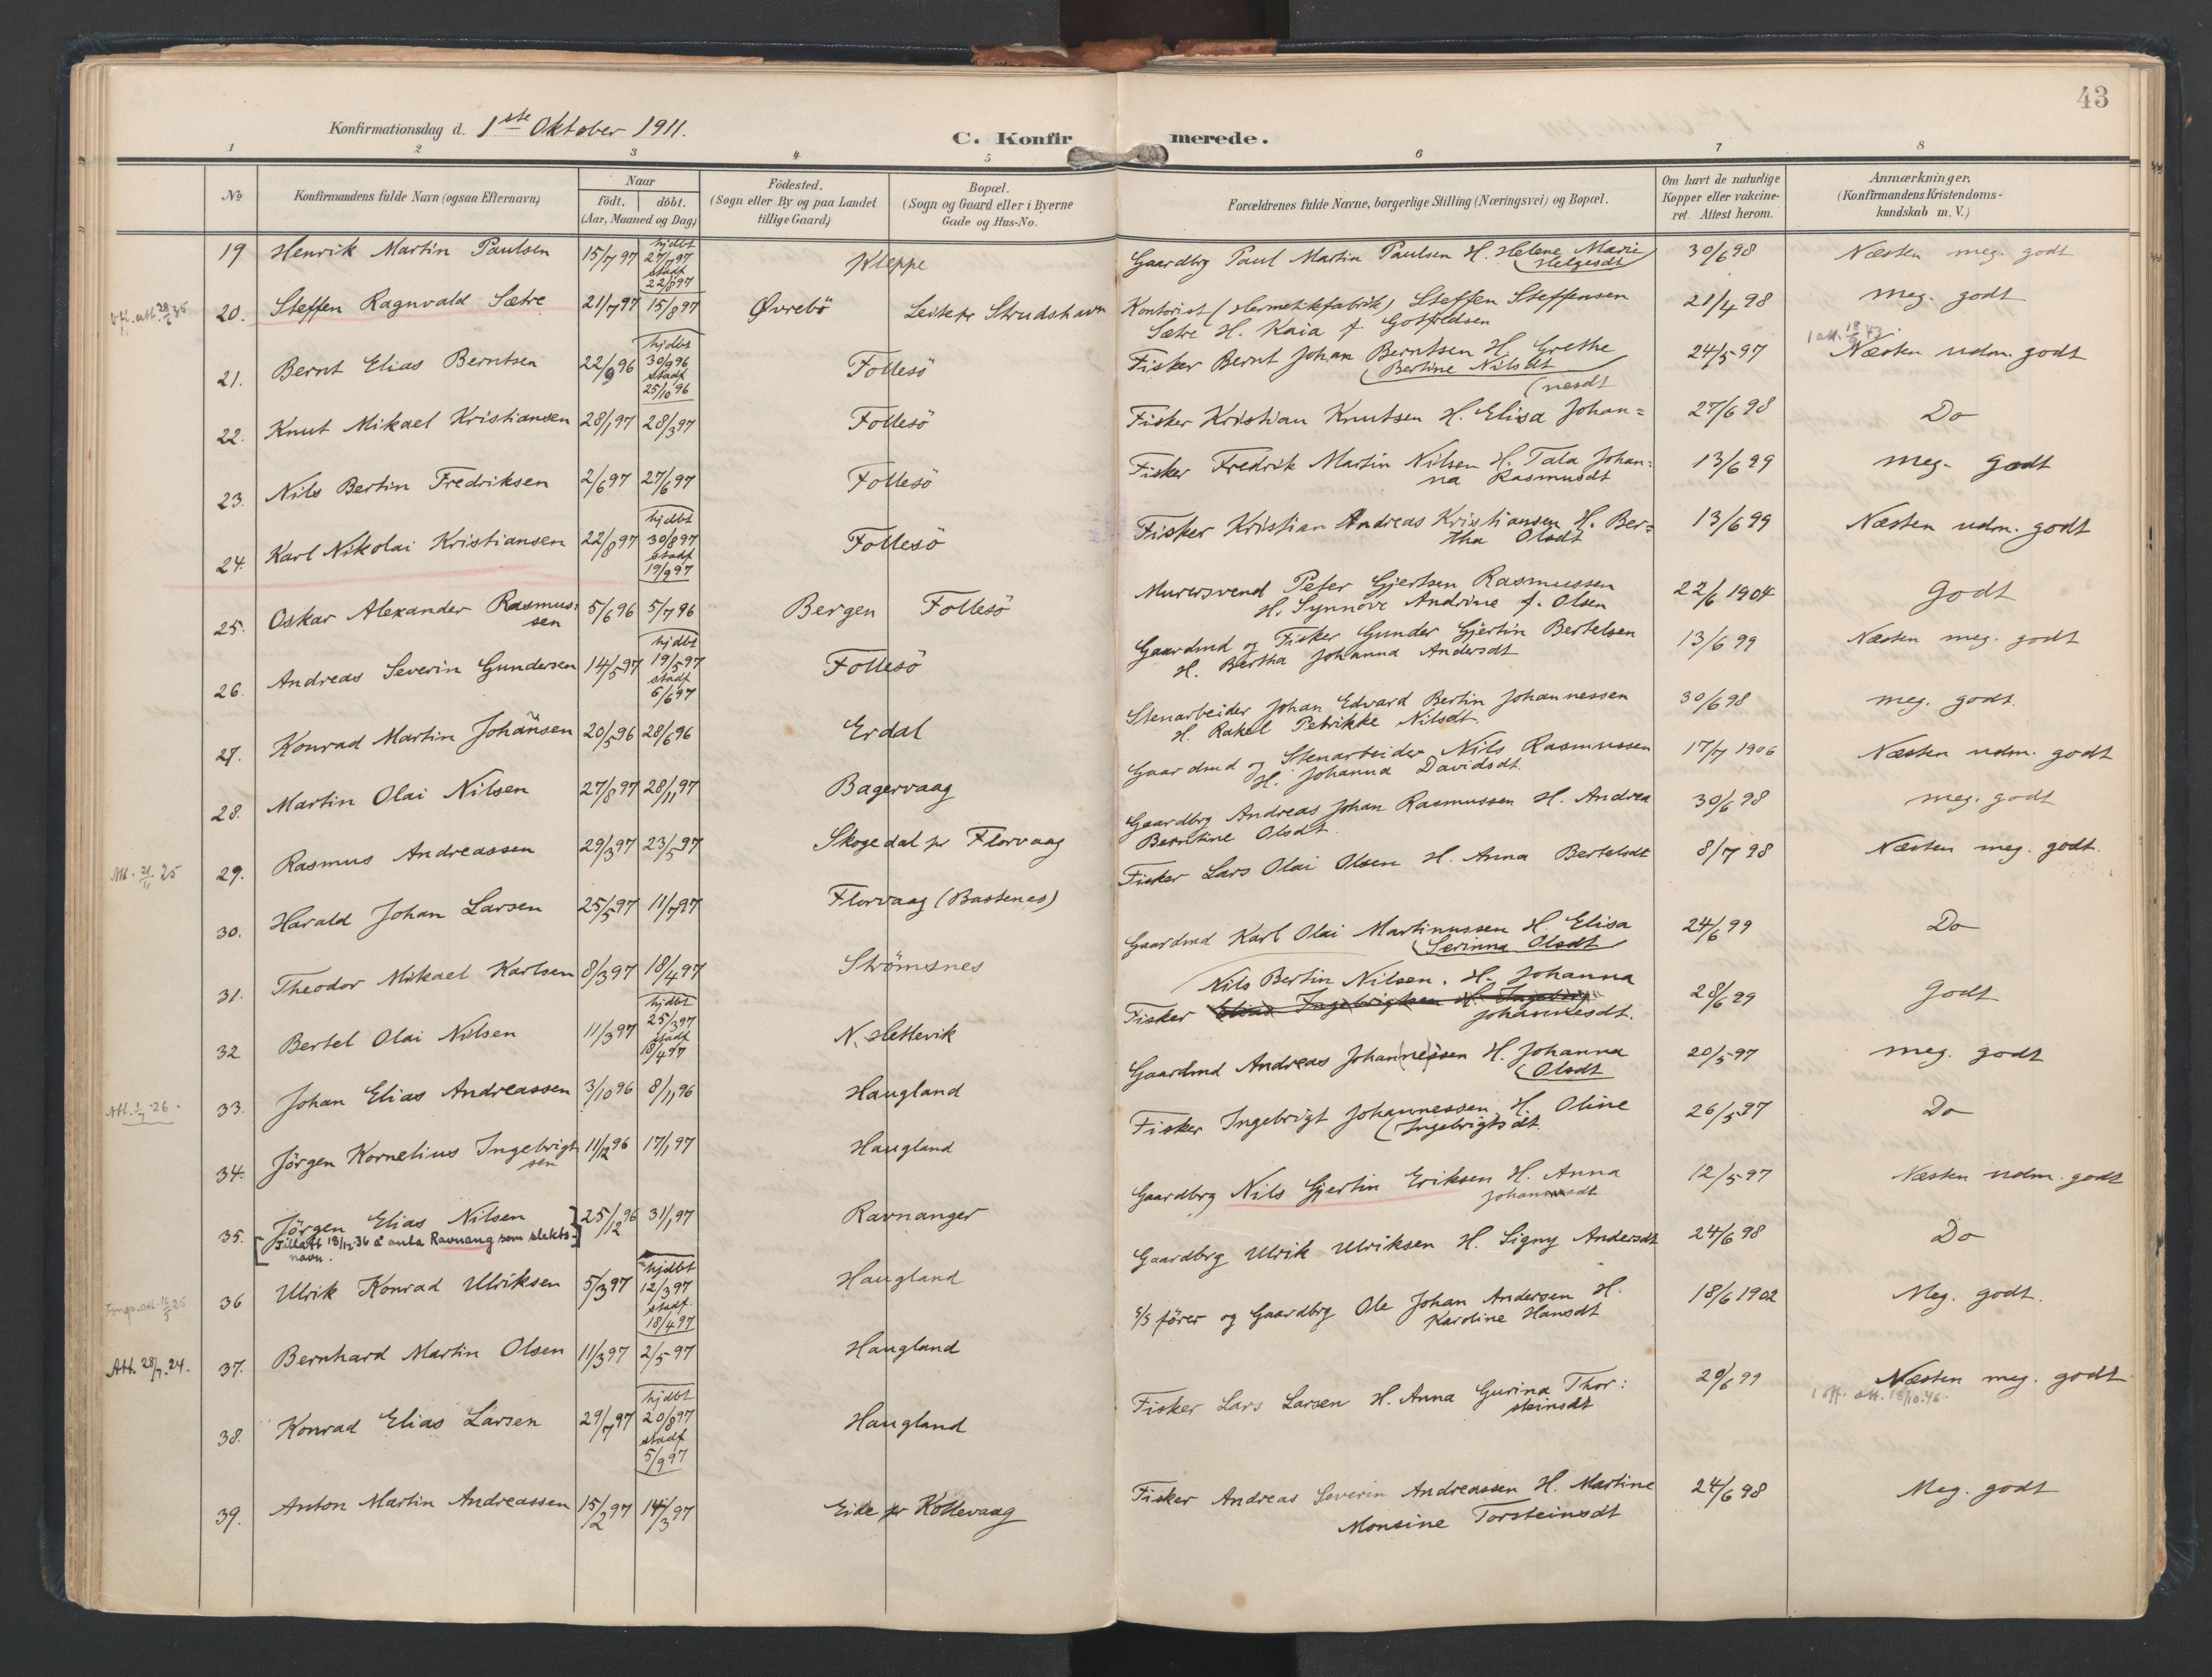 43
Konfirmationsdag d. 1ste Oktober 1911.
C. Konfirmerede.
1 2 3 4 5 6 7 8
No
Konfirmandens fulde Navn (ogsaa Efternavn)
Naar
födt. döbt.
(Aar, Maaned og Dag)
Födested.
(Sogn eller By og paa Landet
tillige Gaard)
Bopæl.
(Sogn og Gaard eller i Byerne
Gade og Hus-No.
Forældrenes fulde Navne, borgerlige Stilling (Næringsvei) og Bopæl.
Om havt de naturlige
Kopper eller vakcine-
ret. Attest herom.
Anmærkninger.
(Konfirmandens Kristendoms-
kundskab m. V.)
19 Henrik Martin Paulsen 15/7 97 hjdbt 27/7 97 stadf 22/8 97 Kleppe Gaardbrg Paul Martin Paulsen H. Helene Marie 30/6 98 Næsten meg. godt
Helgesdt
20. Steffen Ragnvald Sætre 21/7 97 15/8 97 Øvrebö Leite pr Strudshavn Kontorist (Hermetikfabrik) Steffen Steffensen 21/4 98 meg. godt
Sætre H. Kaia f. Gotfredsen
21. Bernt Elias Berntsen 22/9 96 hjdbt 30/9 96 stadf 25/10 96 Follesö Fisker Bernt Johan Berntsen H. Grethe 24/5 97 Næsten udm. godt
Bertine Nilsdt
22. Knut Mikael Kristiansen 28/1 97 28/3 97 Follesö Fisker Kristian Knutsen H. Elisa Johan= 27/6 98 Do
nesdt
23. Nils Bertin Fredriksen 2/6 97 27/6 97 Follesö Fisker Fredrik Martin Nilsen H. Tala Johan: 13/6 99 meg. godt
na Rasmusdt
24. Karl Nikolai Kristiansen 22/8 97 hjdbt 30/8 97 stadf 19/9 97 Follesö Fisker Kristian Andreas Kristiansen H. Ber= 13/6 99 Næsten udm. godt
tha Olsdt
25. Oskar Alexander Rasmus: 5/6 96 5/7 96 Bergen Follesö Murersvend Peter Gjertsen Rasmussen 22/6 1904 Godt
sen H. Synnöve Andrine f. Olsen
26. Andreas Severin Gundersen 14/5 97 hjdbt 19/5 97 stadf 6/6 97 Follesö Gaardmd og Fisker Gunder Gjertin Bertelsen 13/6 99 Næsten meg. godt
H. Bertha Johanna Andersdt
27. Konrad Martin Johansen 20/5 96 28/6 96 Erdal Stenarbeider Johan Edvard Bertin Johannessen 30/6 98 meg. godt.
H. Rakel Petrikke Nilsdt.
28. Martin Olai Nilsen 27/8 97 28/11 97 Bagervaag Gaardmd og Stenarbeider Nils Rasmussen 17/7 1906 Næsten udm. godt
H. Johanna Davidsdt.
Att. 21/11 25 29. Rasmus Andreassen 29/3 97 23/5 97 Skogedal pr Florvaag Gaardbrg Andreas Johan Rasmussen H. Andrea 30/6 98 meg. godt
Berntine Olsdt.
30. Harald Johan Larsen 25/5 97 11/7 97 Florvaag (Bastenes) Fisker Lars Olai Olsen H. Anna Bertelsdt 8/7 98 Næsten meg. godt.
31. Theodor Mikael Karlsen 8/3 97 18/4 97 Strömsnes Gaardmd Karl Olai Martinussen H. Elisa 24/6 99 Do
Serinna Olsdt
32 Bertel Olai Nilsen 11/3 97 hjdbt 25/3 97 stadf 18/4 97 N. Hettevik Nils Bertin Nilsen. H. Johanna
Fisker Elias Ingebrigtsen H. Ingeborg Johannesdt. 28/6 99 Godt
Att. 1/7 26. 33. Johan Elias Andreassen 3/10 96 8/11 96 Haugland Gaardmd Andreas Johan(ne)sen H. Johanna 20/5 97 meg. godt
Olsdt
34. Jörgen Kornelius Ingebrigt 11/12 96 17/1 97 Haugland Fisker Ingebrigt Johannessen H. Oline 26/5 97 Do
sen Ingebrigtsdt.
35. Jörgen Elias Nilsen 25/12 96 31/1 97 Ravnanger Gaardbrg Nils Gjertin Eriksen H. Anna 12/5 97 Næsten udm. godt
[Tillatt 18/12 36 å anta Ravnang som slekts-
navn.] Johannesdt
36 Ulrik Konrad Ulriksen 5/3 97 hjdbt 12/3 97 stadf. 18/4 97 Haugland Gaardbrg Ulrik Ulriksen H. Signy Andersdt 24/6 98 Do
Att. 28/7. 24. 37. Bernhard Martin Olsen 11/3 97 2/5 97 Haugland S/S förer og Gaardbrg Ole Johan Andersen H. 18/6 1902 Meg. godt.
Karoline Hansdt
38. Konrad Elias Larsen 29/7 97 hjdbt 20/8 97 stadf 5/9 97 Haugland Fisker Lars Larsen H. Anna Gurina Thor: 20/6 99 Næsten meg. godt
steinsdt
39. Anton Martin Andreassen 15/2 97 14/3 97 Eide pr Kollevaag Fisker Andreas Severin Andreassen H. Martine 24/6 98 Meg. godt
Monsine Torsteinsdt